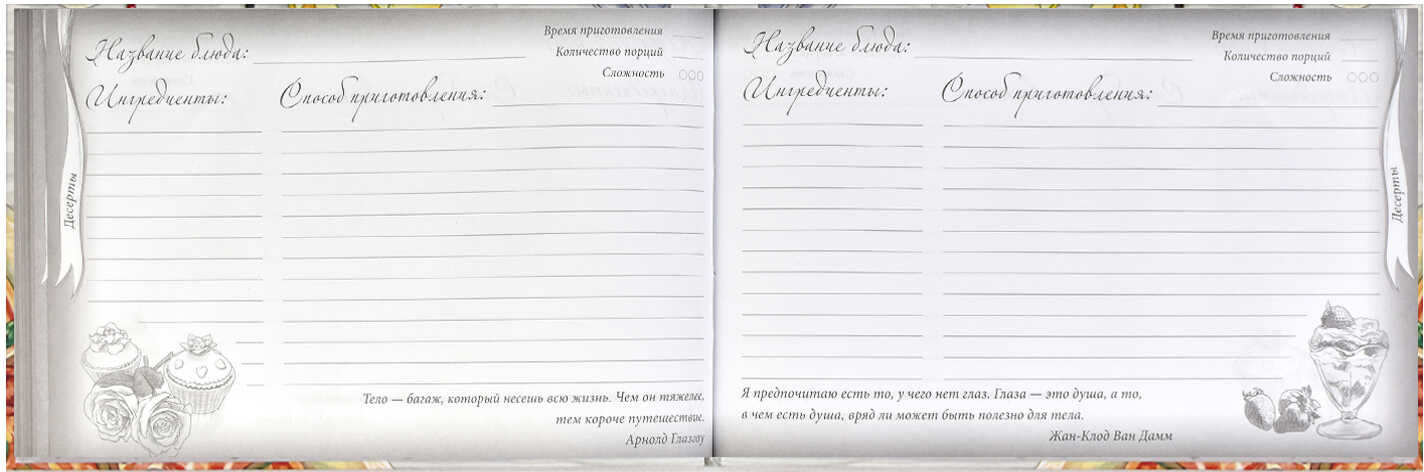 Название блюда:
Время приготовления
Количество порций
Сложность
Ингредиенты:
Способ приготовления:
Десерты
Тело — багаж, который несешь всю жизнь. Чем он тяжелее,
тем короче путешествие.
Арнольд Глазгоу
Название блюда:
Время приготовления
Количество порций
Сложность
Ингредиенты:
Способ приготовления:
Десерты
Я предпочитаю есть то, у чего нет глаз. Глаза — это душа, а то,
в чем есть душа, вряд ли может быть полезно для тела.
Жан-Клод Ван Дамм